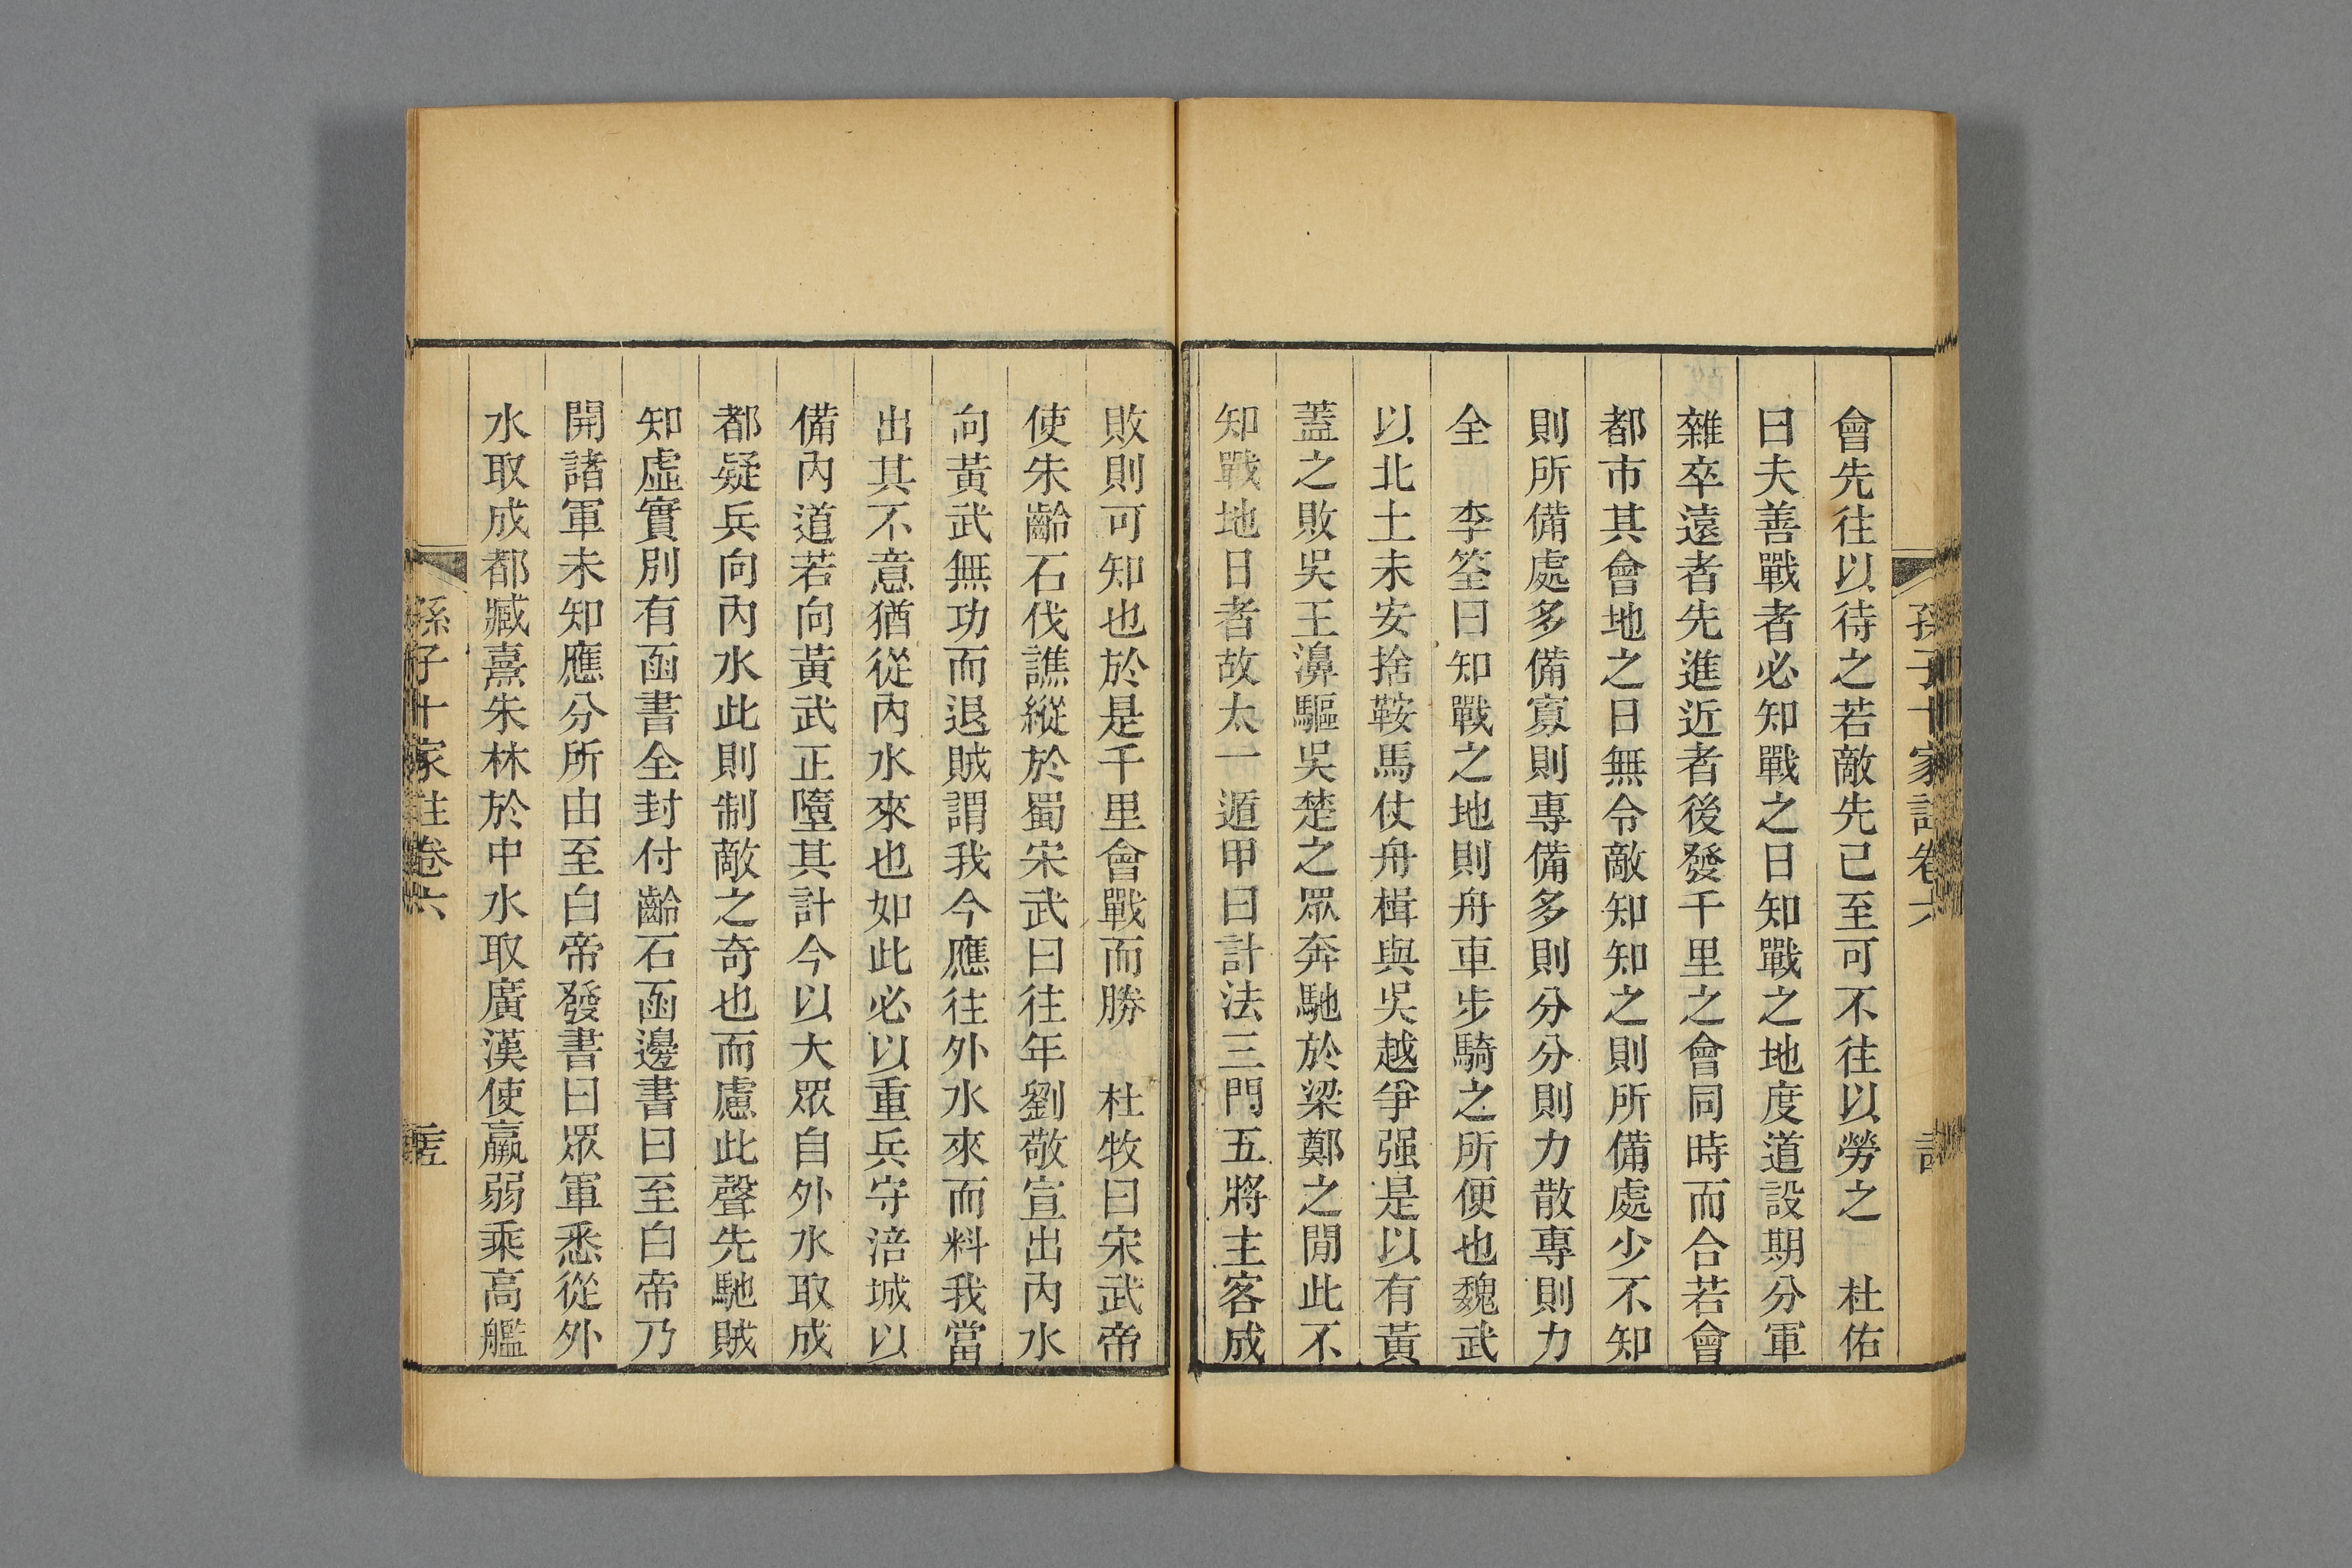 孫子十家註卷六
會先往以待之若敵先已至可不往以勞之　杜佑
曰夫善戰者必知戰之日知戰之地度道設期分軍
雜卒遠者先進近者後發千里之會同時而合若會
都市其會地之日無令敵知知之則所備處少不知
則所備處多備寡則專備多則分分則力散專則力
全　李筌曰知戰之地則舟車步騎之所便也魏武
以北土未安捨鞍馬仗舟楫與吳越爭强是以有黃
蓋之敗吳王濞驅吳楚之眾奔馳於梁鄭之閒此不
知戰地日者故太一遁甲曰計法三門五將主客成
敗則可知也於是千里會戰而勝　杜牧曰宋武帝
使朱齡石伐譙縱於蜀宋武曰往年劉敬宣出內水
向黃武無功而退賊謂我今應往外水來而料我當
出其不意猶從內水來也如此必以重兵守涪城以
備內道若向黃武正墮其計今以大眾自外水取成
都疑兵向內水此則制敵之奇也而慮此聲先馳賊
知虛實別有函書全封付齡石函邊書曰至白帝乃
開諸軍未知應分所由至白帝發書曰眾軍悉從外
水取成都臧熹朱林於中水取廣漢使羸弱乘高艦
孫子十家註卷六